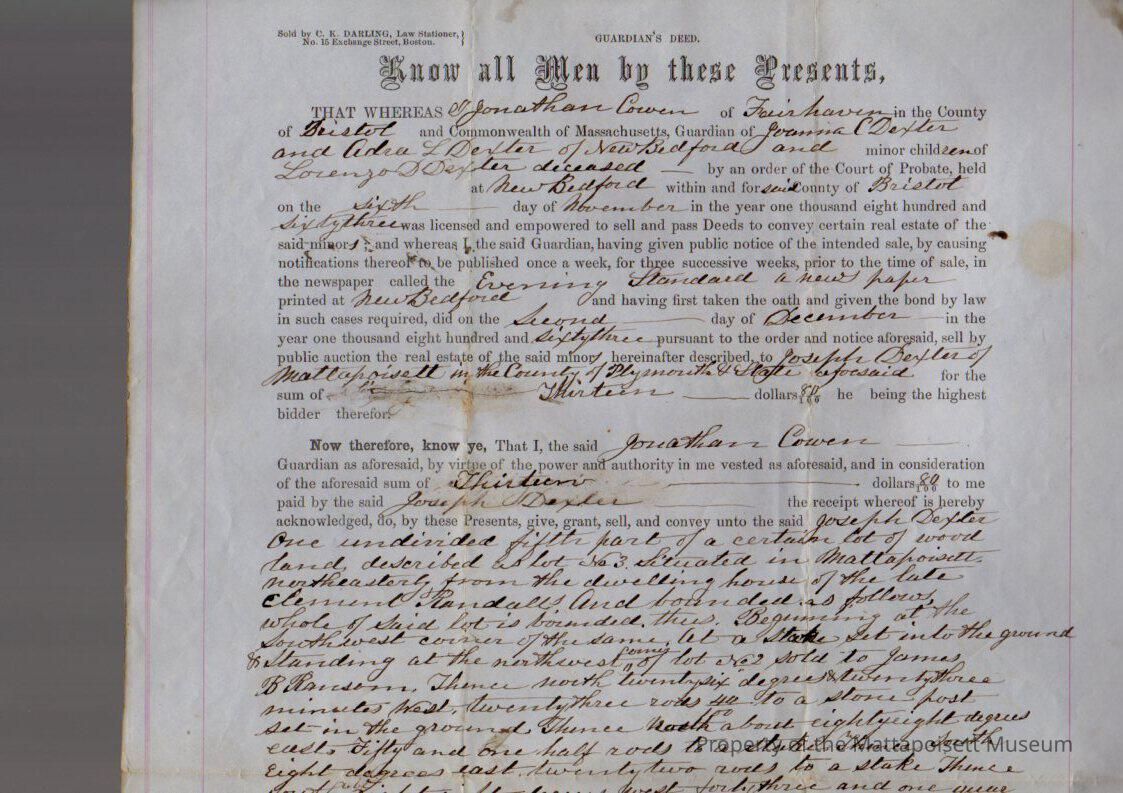 Sold by C. K. DARLING, Law Stationer,
No. 15 Exchange Street, Boston.
GUARDIAN'S DEED.
Know all Men by these Presents,
THAT WHEREAS I Jonathan Cowen of Fairhaven in the County
of Bristol and Commonwealth of Massachusetts, Guardian of Joanna C Dexter
and Adra L Dexter of New Bedford and minor children of
Lorenzo D Dexter deceased — by an order of the Court of Probate, held
at New Bedford within and for said County of Bristol
on the sixth day of November in the year one thousand eight hundred and
sixtythree was licensed and empowered to sell and pass Deeds to convey certain real estate of the
said minors; and whereas I, the said Guardian, having given public notice of the intended sale, by causing
notifications thereof to be published once a week, for three successive weeks, prior to the time of sale, in
the newspaper called the Evening Standard a news paper
printed at New Bedford and having first taken the oath and given the bond by law
in such cases required, did on the Second day of December in the
year one thousand eight hundred and sixtythree pursuant to the order and notice aforesaid, sell by
public auction the real estate of the said minors hereinafter described, to Joseph Dexter of
Mattapoisett in the County of Plymouth & State aforesaid for the
sum of Thirteen — dollars 80/100 he being the highest
bidder therefor.
Now therefore, know ye, That I, the said Jonathan Cowen
Guardian as aforesaid, by virtue of the power and authority in me vested as aforesaid, and in consideration
of the aforesaid sum of Thirteen dollars 80/100 to me
paid by the said Joseph Dexter the receipt whereof is hereby
acknowledged, do, by these Presents, give, grant, sell, and convey unto the said Joseph Dexter
One undivided fifth part of a certain lot of wood
land, described as lot No 3. Situated in Mattapoisett
northeasterly from the dwelling house of the late
Clement Randalls And bounded as follows,
whole of said lot is bounded, thus. Beginning at the
Southwest corner of the same, At a stake set into the ground
& Standing at the northwest corner of lot No 2 sold to James
B Ransom, Thence north twentysix degrees & twentythree
minutes West, twentythree rods to a stone post
set in the ground Thence North about eightyeight degrees
east Fifty and one half rods to a stake Thence South
Eight degrees east, twentytwo rods to a stake Thence
west fortythree and one quar
Property of the Mattapoisett Museum